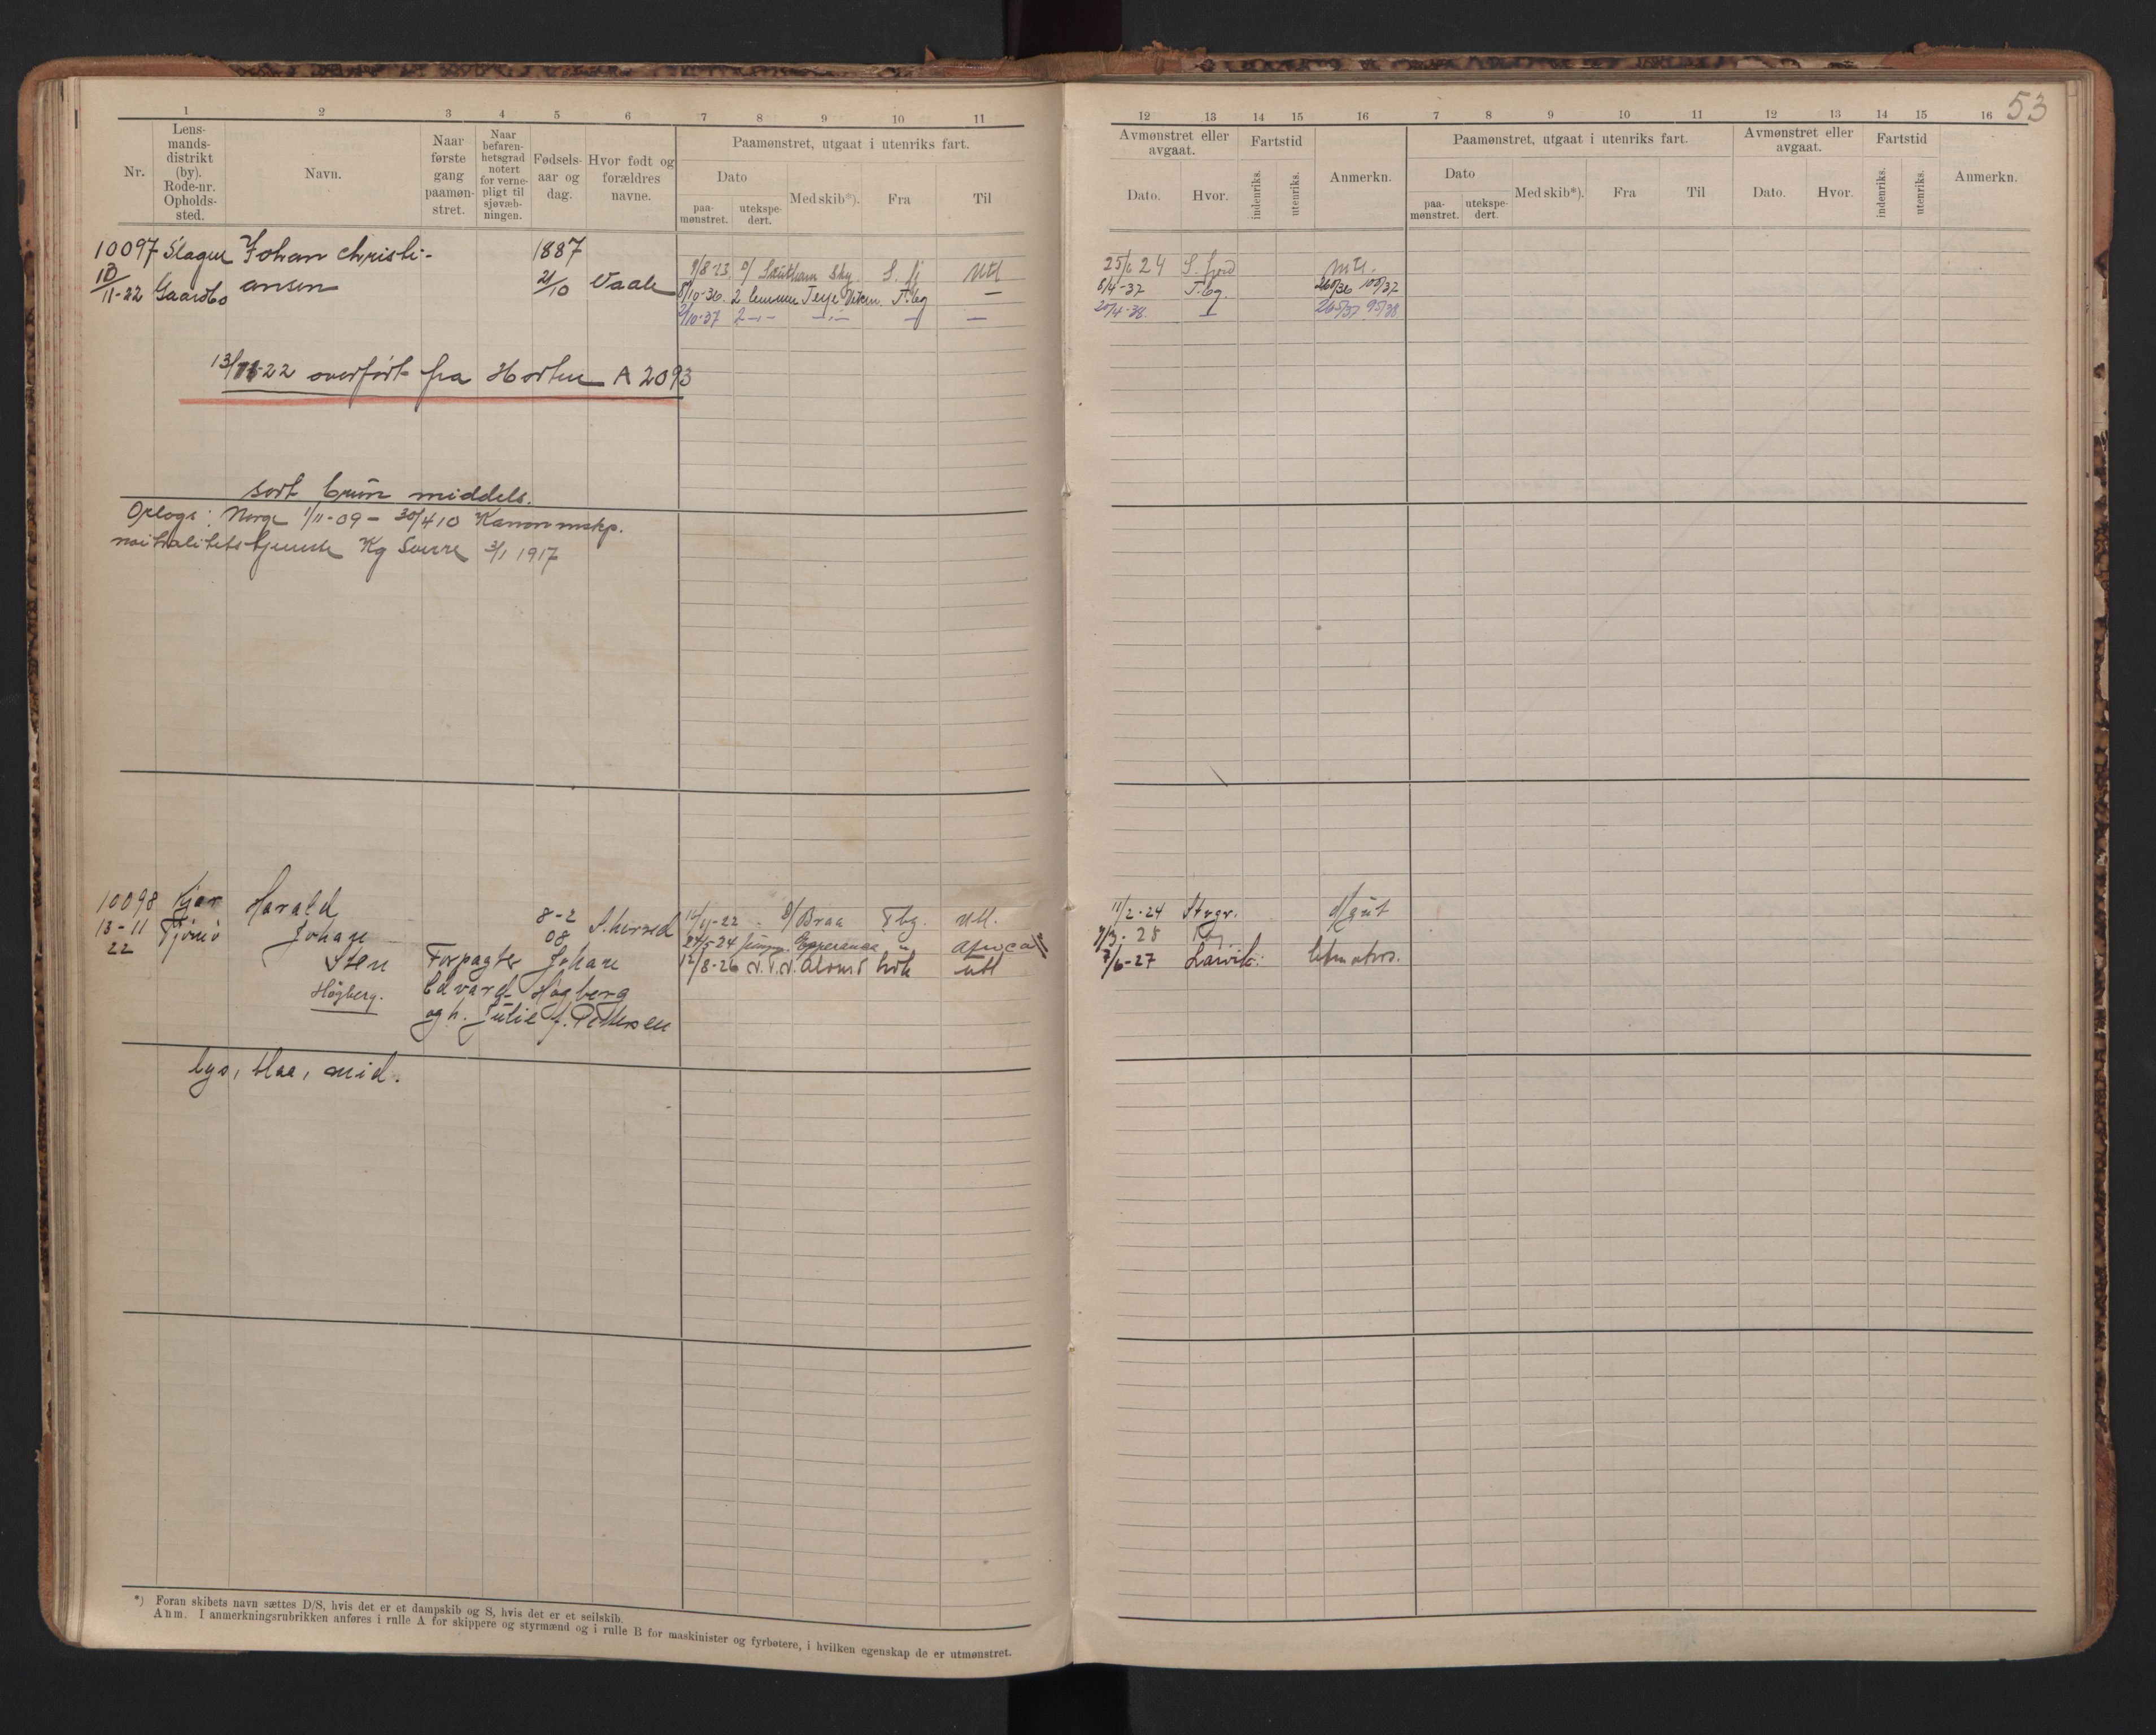 53
1 2 3 4 5 6 7 8 9 10 11
Nr.
Lens-
mands-
distrikt
(by).
Rode-nr.
Opholds-
sted.
Navn.
Naar
første
gang
paamøn-
stret.
Naar
befaren-
hetsgrad
notert
for verne-
pligt til
sjøvæb-
ningen.
Fødsels-
aar og
dag.
Hvor født og
forældres
navne.
Paamønstret, utgaat i utenriks fart.
Dato
paa-
mønstret.
utekspe-
dert.
Med skib*).
Fra
Til
12 13 14 15 16 7 8 9 10 11 12 13 14 15 16
Avmønstret eller
avgaat.
Dato.
Hvor.
Fartstid
indenriks.
utenriks.
Anmerkn.
Paamønstret, utgaat i utenriks fart.
Dato
paa-
mønstret.
utekspe-
dert.
Med skib*).
Fra
Til
Avmønstret eller
avgaat.
Dato.
Hvor.
Fartstid
indenriks.
utenriks.
Anmerkn.
10097 Slagen Johan Christi- 1887
10/11-22 Gaardbo ansen 21/10 Vaale
9/8-23 S/ Southern Sky S. fj Utl 25/6 24 S. fjord
8/10-36 2 lemmer Terje Viken T.bg — 8/4-37 T.bg. 260/36 100/37
2/10-37 2 -"- -"- — — 20/4-38 265/37 95/38
13/11-22 overført fra Horten A 2093
sort brun middels.
Oplogs: Norge 1/11-09 - 30/4 10 Kanonmskp.
nøitralitetstjeneste Kg Sverre 3/1 1917
10098 Harald 8-2 S.herred 14/11-22 S/ Braa Tbg. Utl. 11/2-24
13-11 Tjømø Johan 08 24/5-24 Jungm. Esperanca " 28
22 Sten Forpagter Johan 12/8-26 Utl 7/6-27 Larvik.
Høgberg. Edvard Høgberg
og h. Julie f. Pettersen
lys, blaa, mid.
*) Foran skibets navn sættes D/S, hvis det er et dampskib og S, hvis det er et seilskib.
Anm. I anmerkningsrubrikken anføres i rulle A for skippere og styrmænd og i rulle B for maskinister og fyrbøtere, i hvilken egenskap de er utmønstret.